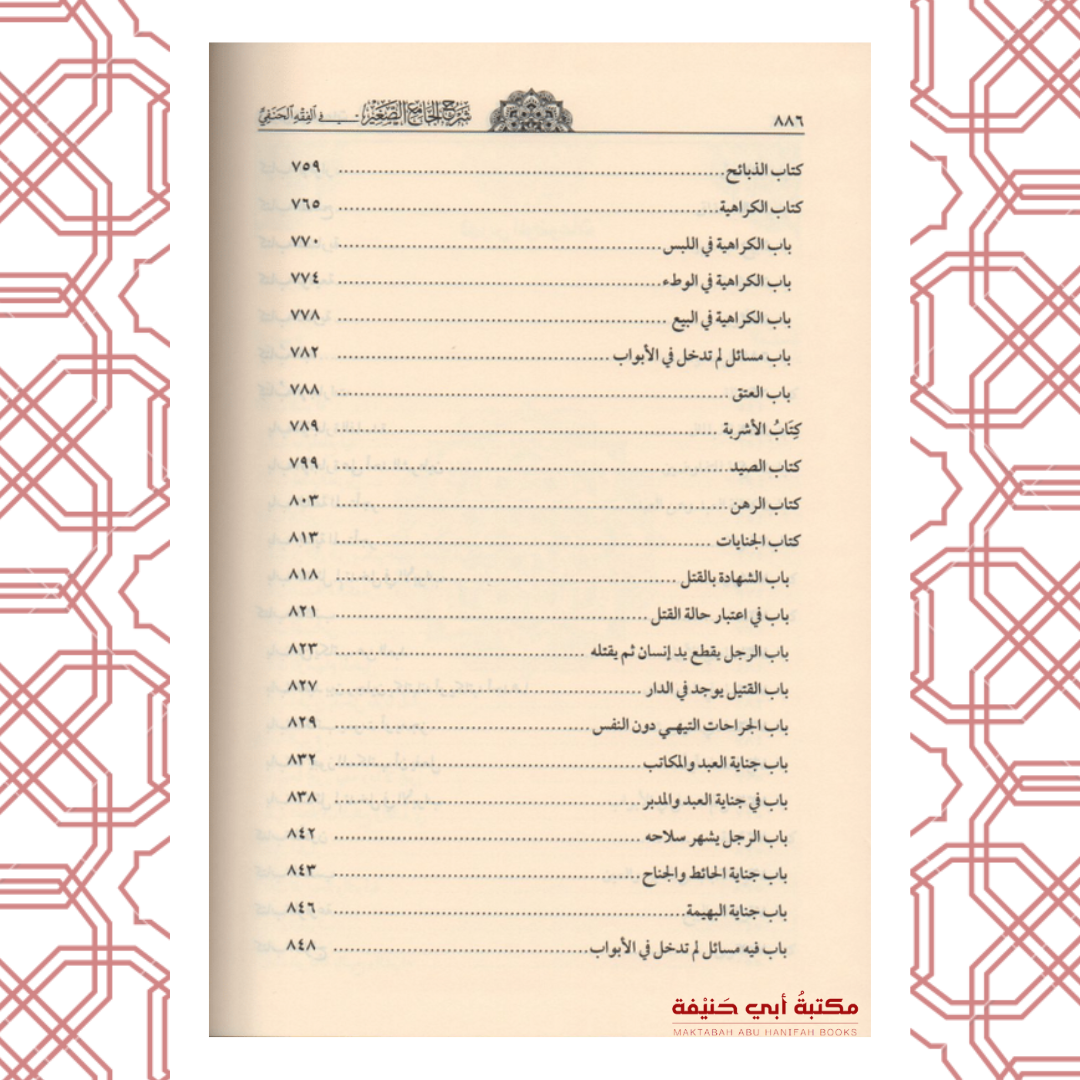 ٨٨٦ شرح الجامع الصغير - في الفقه الحنفي
كتاب الذبائح ........ ٧٥٩
كتاب الكراهية ........ ٧٦٥
باب الكراهية في اللبس ........ ٧٧٠
باب الكراهية في الوطء ........ ٧٧٤
باب الكراهية في البيع ........ ٧٧٨
باب مسائل لم تدخل في الأبواب ........ ٧٨٢
باب العتق ........ ٧٨٨
كِتَابُ الأشربة ........ ٧٨٩
كتاب الصيد ........ ٧٩٩
كتاب الرهن ........ ٨٠٣
كتاب الجنايات ........ ٨١٣
باب الشهادة بالقتل ........ ٨١٨
باب في اعتبار حالة القتل ........ ٨٢١
باب الرجل يقطع يد إنسان ثم يقتله ........ ٨٢٣
باب القتيل يوجد في الدار ........ ٨٢٧
باب الجراحات التيهي دون النفس ........ ٨٢٩
باب جناية العبد والمكاتب ........ ٨٣٢
باب في جناية العبد والمدبر ........ ٨٣٨
باب الرجل يشهر سلاحه ........ ٨٤٢
باب جناية الحائط والجناح ........ ٨٤٣
باب جناية البهيمة ........ ٨٤٦
باب فيه مسائل لم تدخل في الأبواب ........ ٨٤٨
مكتبةُ أبي حَنيْفة
MAKTABAH ABU HANIFAH BOOKS